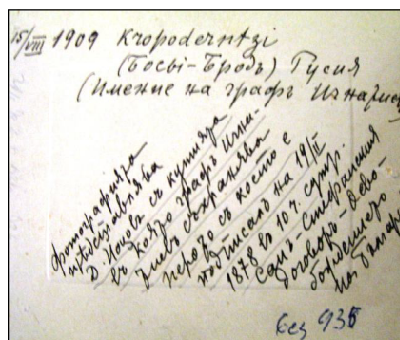 15/VIII 1909 Kropoderntzi
(Босы-Бродъ) Русия
(Имение на графъ Игнатиев
Фотографията
представлява
Д. Ночовъ съ кутията
въ която графъ Игна-
тиевъ съхранява
перото съ което е
подписалъ на 19/II
1878 въ 10 ч. сутр.
Санъ-Стефанския
договоръ - Осво-
бождението
на Бълг